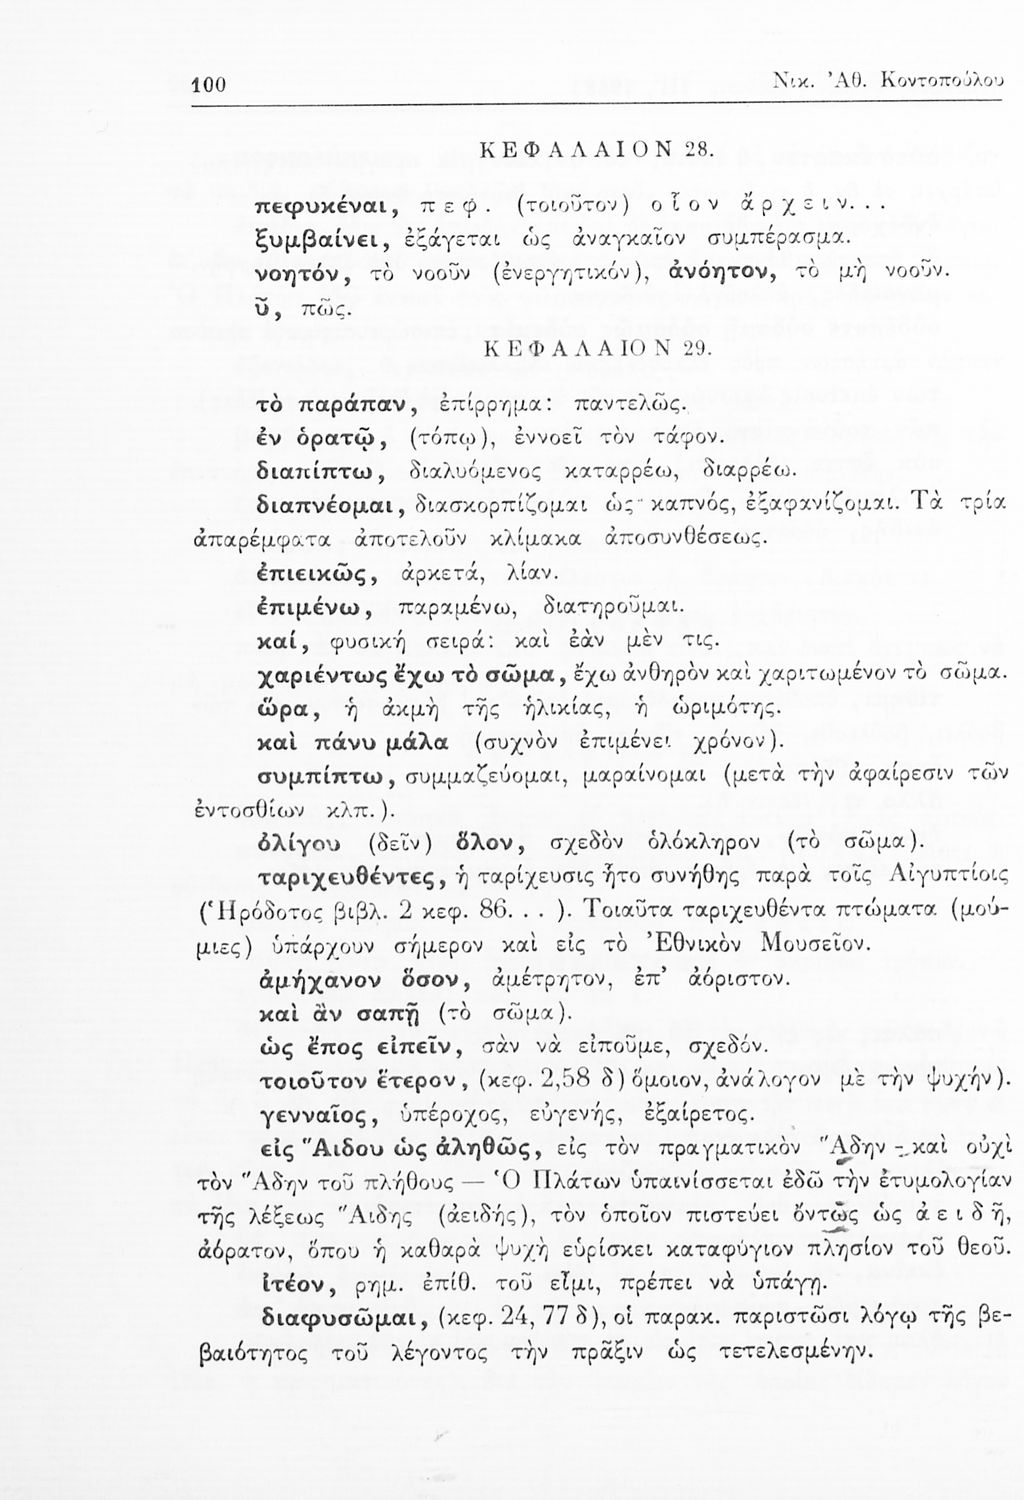 100 Νικ. Ἀθ. Κοντοπούλου
ΚΕΦΑΛΑΙΟΝ 28.
πεφυκέναι, πεφ. (τοιοῦτον) οἷον ἄρχειν...
ξυμβαίνει, ἐξάγεται ὡς ἀναγκαῖον συμπέρασμα.
νοητόν, τὸ νοοῦν (ἐνεργητικόν), ἀνόητον, τὸ μὴ νοοῦν.
ῦ, πῶς.
ΚΕΦΑΛΑΙΟΝ 29.
τὸ παράπαν, ἐπίρρημα: παντελῶς.
ἐν ὁρατῷ, (τόπῳ), ἐννοεῖ τὸν τάφον.
διαπίπτω, διαλυόμενος καταρρέω, διαρρέω.
διαπνέομαι, διασκορπίζομαι ὡς καπνός, ἐξαφανίζομαι. Τὰ τρία
ἀπαρέμφατα ἀποτελοῦν κλίμακα ἀποσυνθέσεως.
ἐπιεικῶς, ἀρκετά, λίαν.
ἐπιμένω, παραμένω, διατηροῦμαι.
καί, φυσική σειρά: καὶ ἐὰν μὲν τις.
χαριέντως ἔχω τὸ σῶμα, ἔχω ἀνθηρὸν καὶ χαριτωμένον τὸ σῶμα.
ὥρα, ἡ ἀκμὴ τῆς ἡλικίας, ἡ ὡριμότης.
καὶ πάνυ μάλα (συχνὸν ἐπιμένει χρόνον).
συμπίπτω, συμμαζεύομαι, μαραίνομαι (μετὰ τὴν ἀφαίρεσιν τῶν
ἐντοσθίων κλπ.).
ὀλίγου (δεῖν) ὅλον, σχεδὸν ὁλόκληρον (τὸ σῶμα).
ταριχευθέντες, ἡ ταρίχευσις ἦτο συνήθης παρὰ τοῖς Αἰγυπτίοις
(Ἡρόδοτος βιβλ. 2 κεφ. 86...). Τοιαῦτα ταριχευθέντα πτώματα (μού-
μιες) ὑπάρχουν σήμερον καὶ εἰς τὸ Ἐθνικὸν Μουσεῖον.
ἀμήχανον ὅσον, ἀμέτρητον, ἐπ’ ἀόριστον.
καὶ ἂν σαπῇ (τὸ σῶμα).
ὡς ἔπος εἰπεῖν, σὰν νὰ εἰποῦμε, σχεδόν.
τοιοῦτον ἕτερον, (κεφ. 2,58 δ) ὅμοιον, ἀνάλογον μὲ τὴν ψυχήν).
γενναῖος, ὑπέροχος, εὐγενής, ἐξαίρετος.
εἰς Ἅιδου ὡς ἀληθῶς, εἰς τὸν πραγματικὸν Ἅδην - καὶ οὐχὶ
τὸν Ἅδην τοῦ πλήθους — Ὁ Πλάτων ὑπαινίσσεται ἐδῶ τὴν ἐτυμολογίαν
τῆς λέξεως Ἅιδης (ἀειδής), τὸν ὁποῖον πιστεύει ὄντως ὡς ἀειδῆ,
ἀόρατον, ὅπου ἡ καθαρὰ ψυχὴ εὑρίσκει καταφύγιον πλησίον τοῦ θεοῦ.
ἰτέον, ρημ. ἐπίθ. τοῦ εἶμι, πρέπει νὰ ὑπάγῃ.
διαφυσῶμαι, (κεφ. 24, 77 δ), οἱ παρακ. παριστῶσι λόγῳ τῆς βε-
βαιότητος τοῦ λέγοντος τὴν πρᾶξιν ὡς τετελεσμένην.